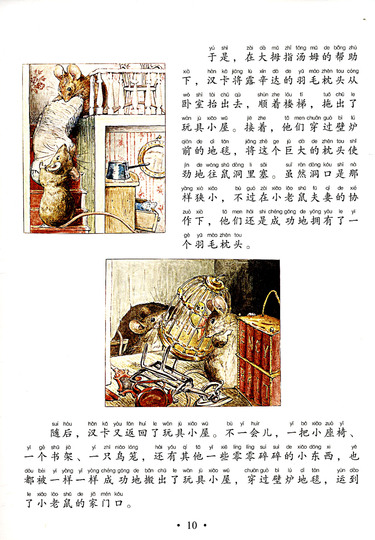 yú shì zài dà mǔ zhǐ tāng mǔ de bāng zhù
于是，在大拇指汤姆的帮助
xià hàn kǎ jiāng lù xīn dá de yǔ máo zhěn tou cóng
下，汉卡将露辛达的羽毛枕头从
wò shì tái chū qù shùn zhe lóu tī tuō chū le
卧室抬出去，顺着楼梯，拖出了
wán jù xiǎo wū jiē zhe tā men chuān guò bì lú
玩具小屋。接着，他们穿过壁炉
qián de dì tǎn jiāng zhè ge jù dà de zhěn tou shǐ
前的地毯，将这个巨大的枕头使
jìn de wǎng shǔ dòng lǐ sāi suī rán dòng kǒu shì nà
劲地往鼠洞里塞。虽然洞口是那
yàng xiá xiǎo bú guò zài xiǎo lǎo shǔ fū qī de xié
样狭小，不过在小老鼠夫妻的协
zuò xià tā men hái shì chéng gōng de yōng yǒu le yí
作下，他们还是成功地拥有了一
gè yǔ máo zhěn tou
个羽毛枕头。
suí hòu hàn kǎ yòu fǎn huí le wán jù xiǎo wū bù yí huìr yì bǎ xiǎo zuò yǐ
随后，汉卡又返回了玩具小屋。不一会儿，一把小座椅、
yí gè shū jià yì zhī niǎo lóng hái yǒu qí tā yì xiē líng líng suì suì de xiǎo dōng xi yě
一个书架、一只鸟笼，还有其他一些零零碎碎的小东西，也
dōu bèi yí yàng yí yàng chéng gōng de bān chū le wán jù xiǎo wū chuān guò bì lú dì tǎn yùn dào
都被一样一样成功地搬出了玩具小屋，穿过壁炉地毯，运到
le xiǎo lǎo shǔ de jiā mén kǒu
了小老鼠的家门口。
• 10 •